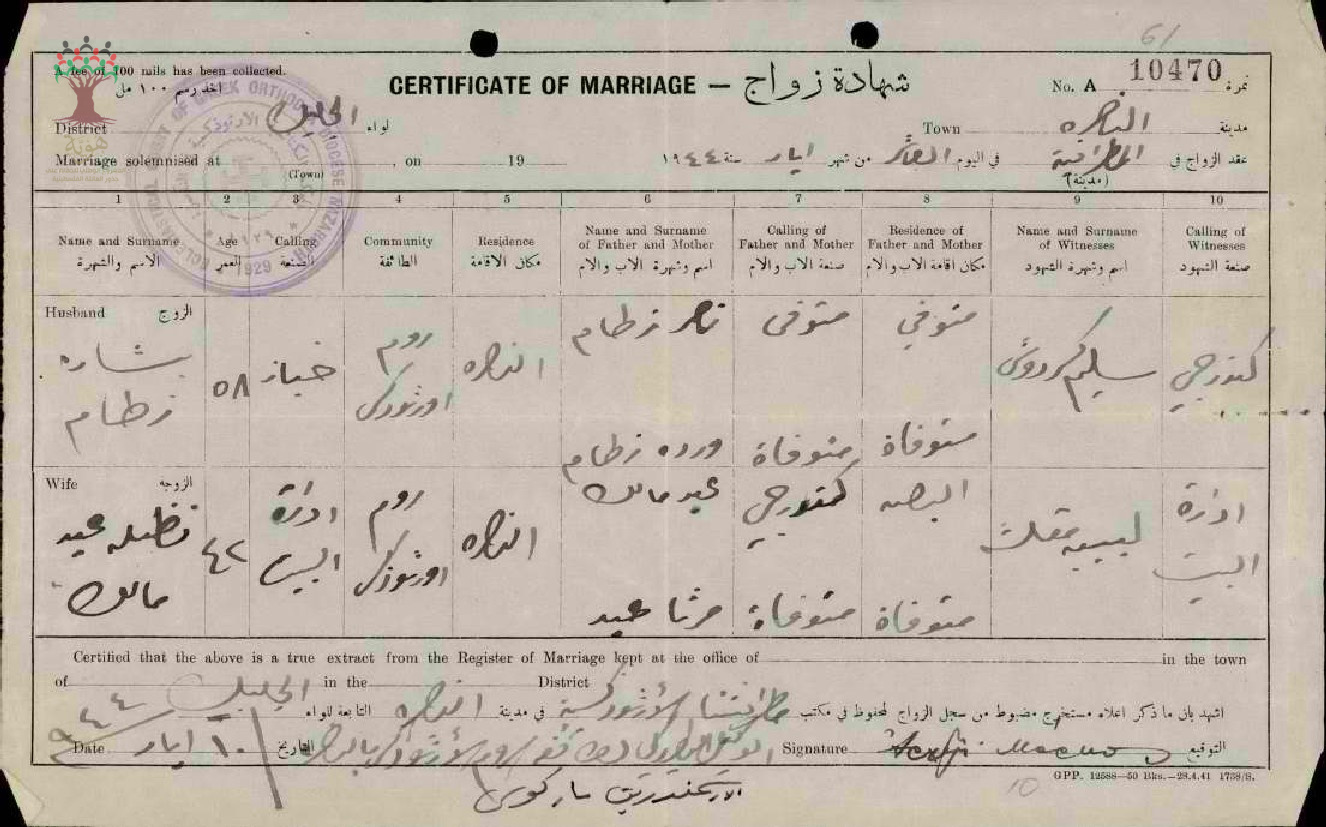 61
A fee of 100 mils has been collected.
اخذ رسم ١٠٠ مل
CERTIFICATE OF MARRIAGE — شهادة زواج
No. A 10470 نمرة
District الجليل لواء
Town الناصره مدينة
Marriage solemnised at , on 19
(Town)
عقد الزواج في المطرانية في اليوم العاشر من شهر ايار سنة ١٩٤٤
(مدينة)
هوية
1 2 3 4 5 6 7 8 9 10
Name and Surname
الاسم والشهرة
Age
العمر
Calling
الصنعة
Community
الطائفة
Residence
مكان الاقامة
Name and Surname
of Father and Mother
اسم وشهرة الاب والام
Calling of
Father and Mother
صنعة الاب والام
Residence of
Father and Mother
مكان اقامة الاب والام
Name and Surname
of Witnesses
اسم وشهرة الشهود
Calling of
Witnesses
صنعة الشهود
Husband الزوج
بشاره
زطام
٥٨
خباز
روم
اورثوذكس
الناصره
زطام
متوفى
متوفي
ورده زطام
متوفاة
متوفاة
سليم
كندرجي
Wife الزوجه
عيد
مالك
٤٢
ادارة
البيت
روم
اورثوذكس
الناصره
عيد مالك
كندرجي
مرثا عيد
متوفاة
متوفاة
لبيبه
ادارة
البيت
Certified that the above is a true extract from the Register of Marriage kept at the office of in the town
of in the District
اشهد بان ما ذكر اعلاه مستخرج مضبوط من سجل الزواج المحفوظ في مكتب مطرانيتنا الأرثوذكسية في مدينة الناصره التابعة للواء الجليل
Date ١٠ ايار ٩٤٤ التاريخ
Signature التوقيع
الارشمندريت ماركوس
GPP. 12588—50 Bks.—28.4.41 1738/S.
10